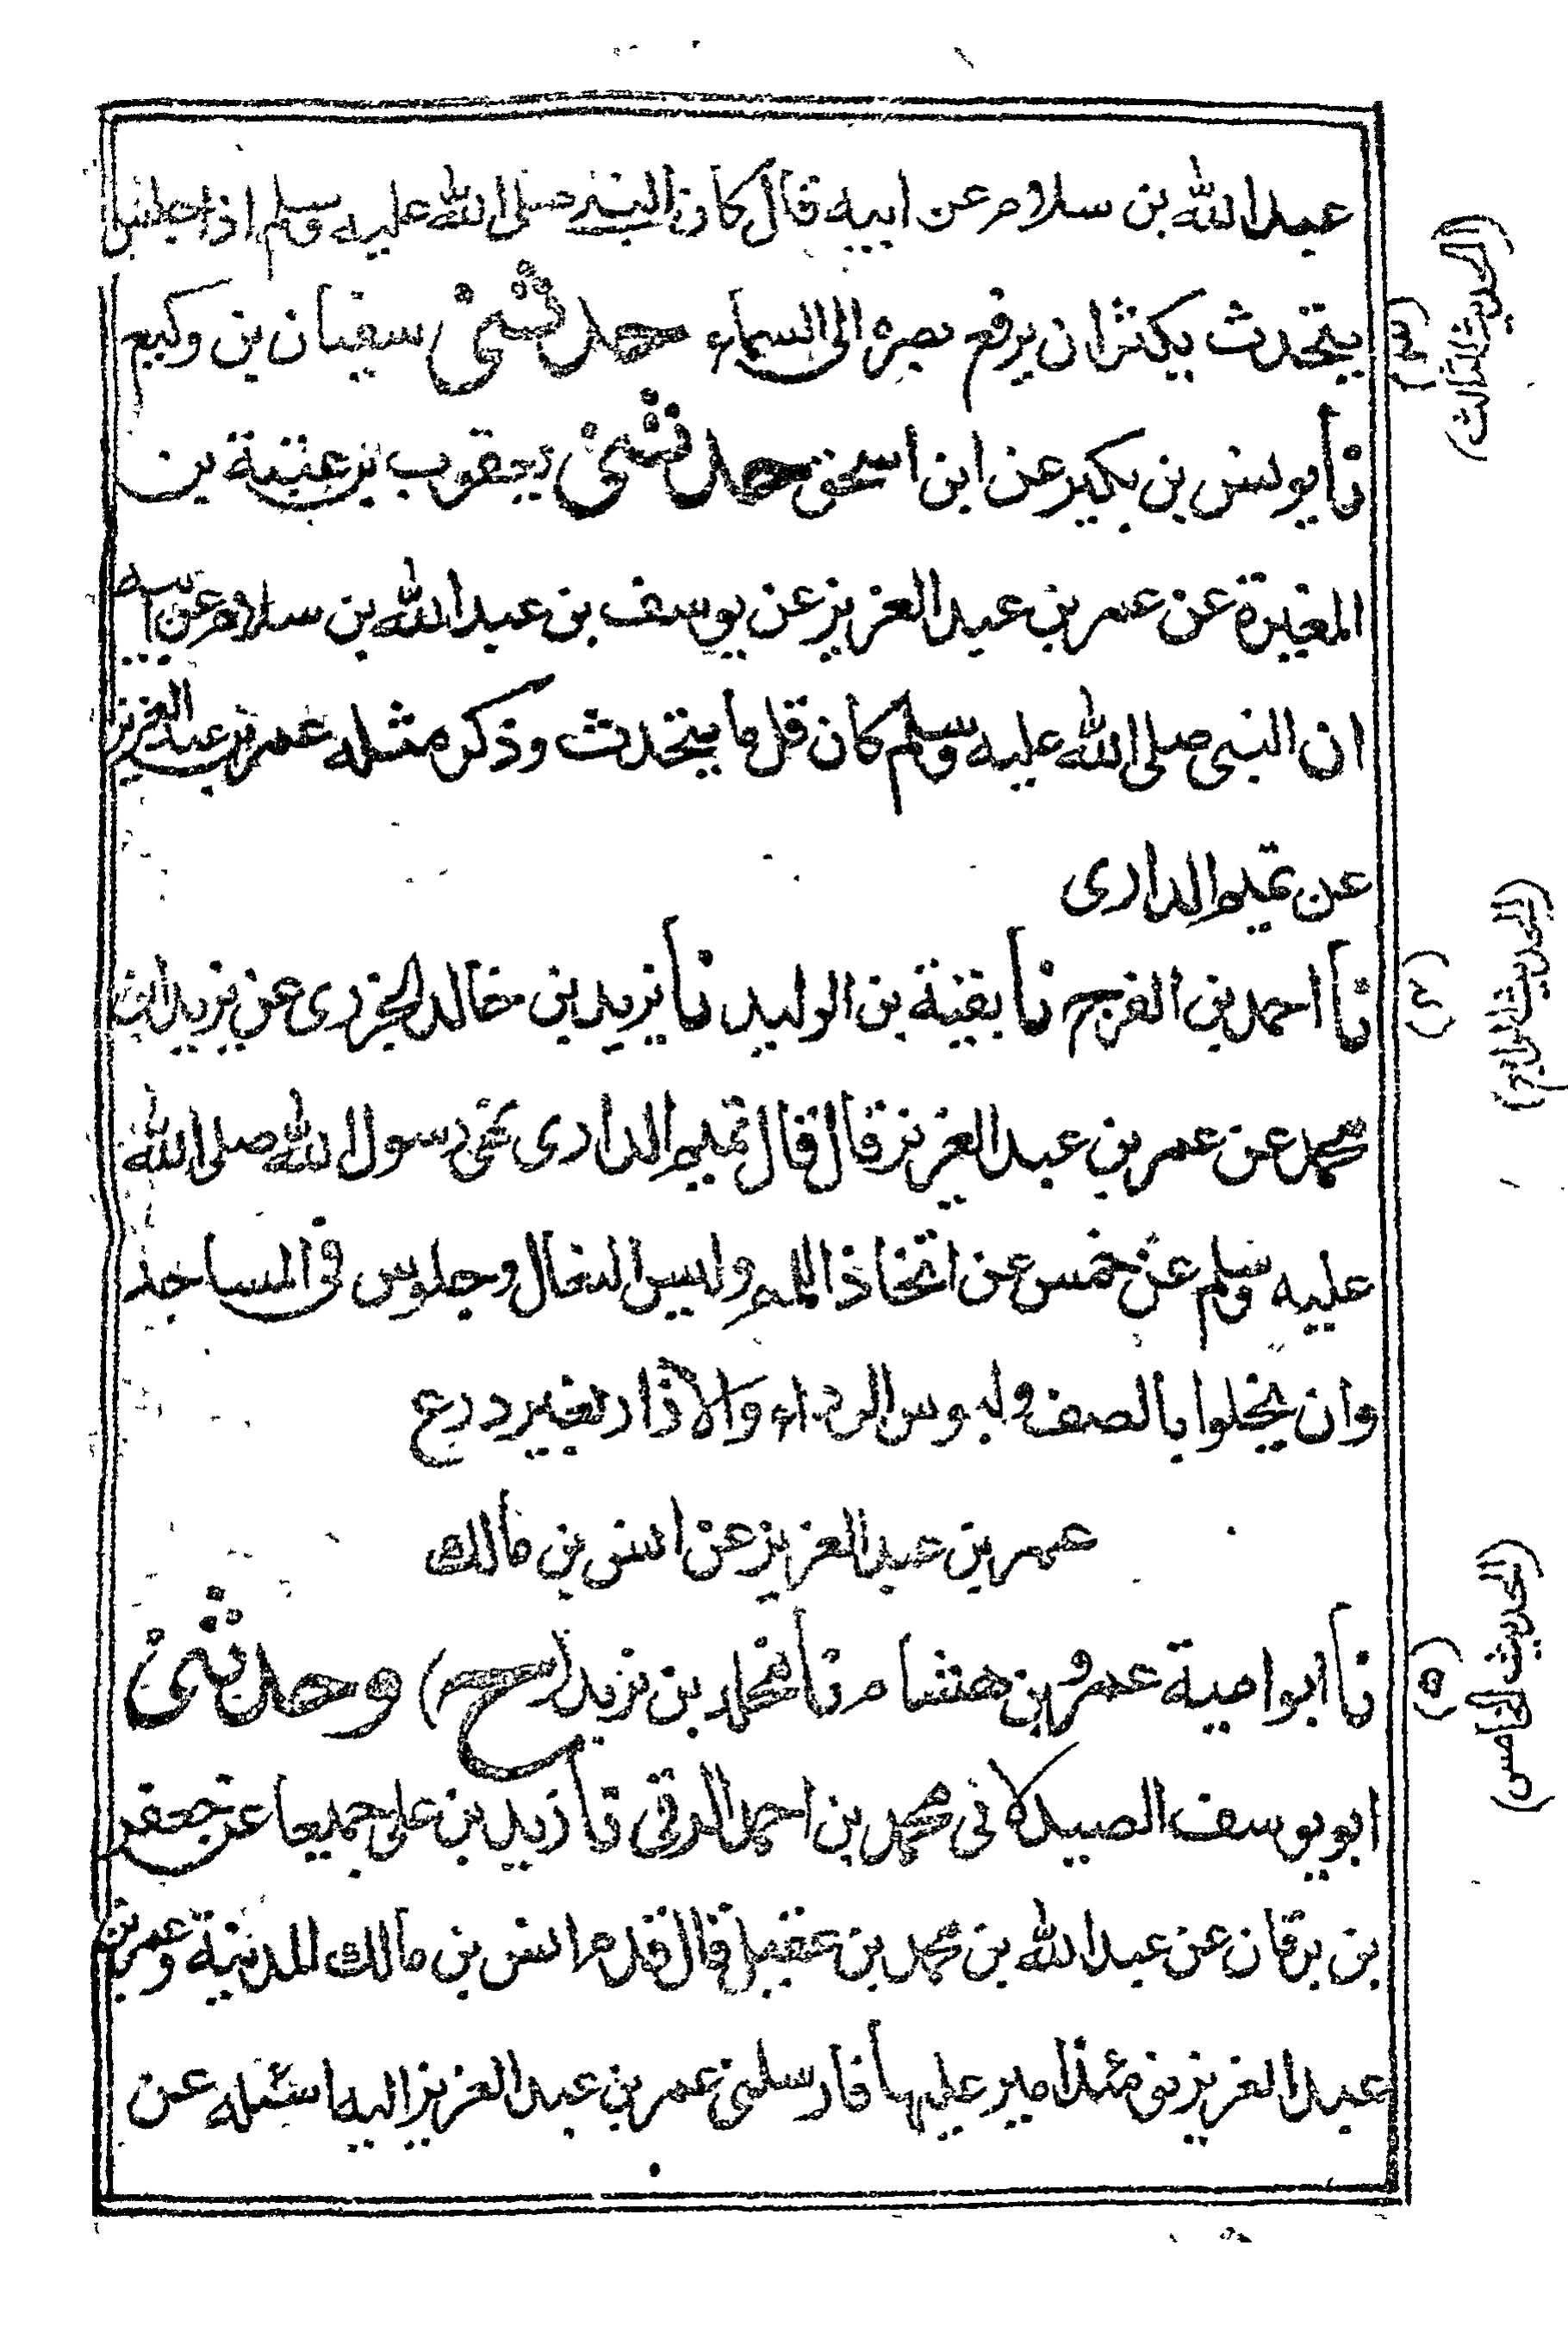 عبدالله بن سلام عن ابيه قال كان النبى صلى الله عليه وسلم اذا جلس
يتحدث يكثر ان يرفع بصره الى السماء حدثنى سفيان بن وكيع
(الحديث الثالث)
(٣)
نا يونس بن بكير عن ابن اسحق حدثنى يعقوب بن عتبة بن
المغيرة عن عمر بن عبد العزيز عن يوسف بن عبدالله بن سلام عن ابيه
ان النبى صلى الله عليه وسلم كان قل ما يتحدث وذكر مثله عمر بن عبد العزيز
عن تميم الدارى
نا احمد بن الفرج نا بقية بن الوليد نا يزيد بن خالد الجزرى عن يزيد ابن
(الحديث الرابع)
(٤)
محمد عن عمر بن عبد العزيز قال قال تميم الدارى نهى رسول الله صلى الله
عليه وسلم عن خمس عن اتخاذ اللمم ولبس النعال وجلوس فى المساجد
وان يخلوا بالصف ولبوس الرداء والازار بغير درع
عمر بن عبد العزيز عن انس بن مالك
نا ابو امية عمرو بن هشام نا مخلد بن يزيد (ح) وحدثنى
(الحديث الخامس)
(٥)
ابو يوسف الصيدلانى محمد بن احمد الرقى نا زيد بن على جميعا عن جعفر
بن برقان عن عبدالله بن محمد بن عقيل قال قدم انس بن مالك المدينة وعمر بن
عبد العزيز يومئذ امير عليها فارسلنى عمر بن عبد العزيز اليه اسئله عن